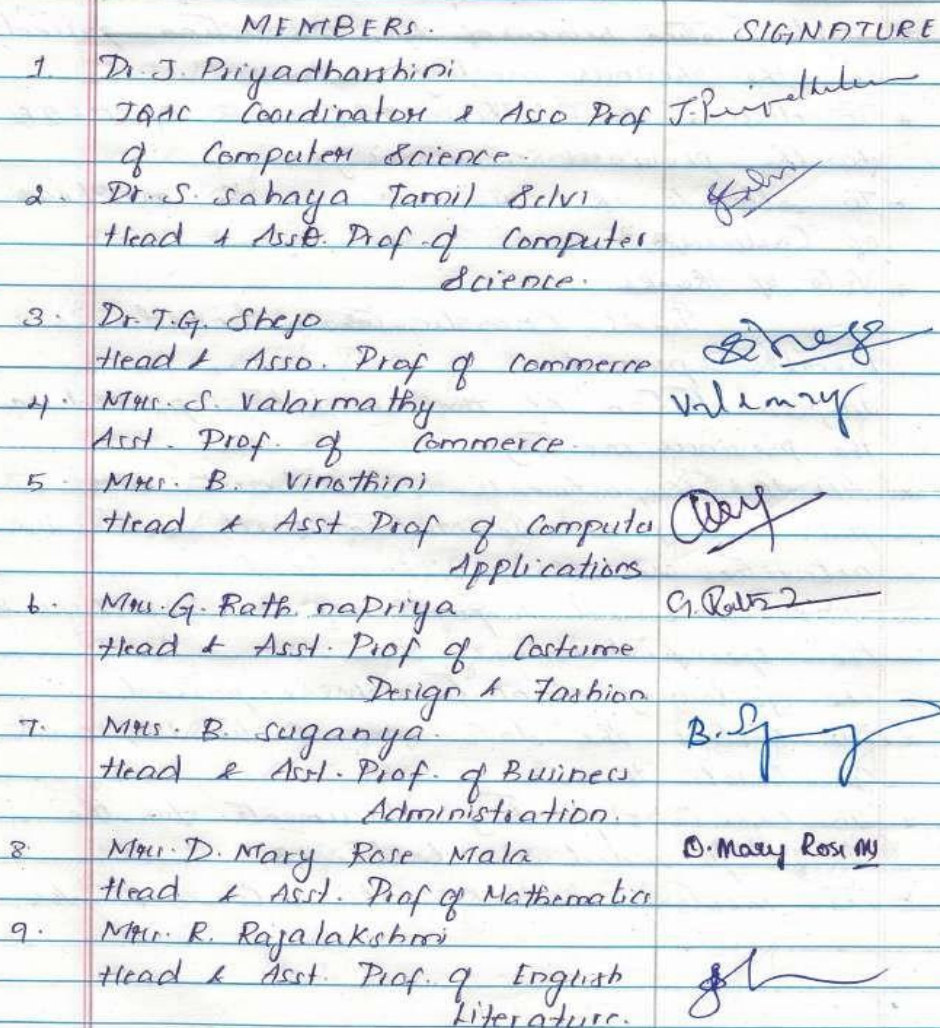 MEMBERS. SIGNATURE
1. Dr. J. Priyadharshini
IQAC Coordinator & Asso Prof J.
of Computer Science.
2. Dr. S. Sahaya Tamil Selvi
Head & Asst. Prof. of Computer
Science.
3. Dr. T.G. Shejo
Head & Asso. Prof of Commerce
4. Mrs. S. Valarmathy
Asst. Prof. of Commerce.
5. Mrs. B. Vinothini
Head & Asst Prof of Computer
Applications
6. Mrs. G. Rathnapriya G.
Head & Asst. Prof of Costume
Design & Fashion
7. Mrs. B. Suganya. B.
Head & Asst. Prof. of Business
Administration.
8. Mrs. D. Mary Rose Mala D. Mary Rose M
Head & Asst. Prof of Mathematics
9. Mrs. R. Rajalakshmi
Head & Asst. Prof. of English
Literature.